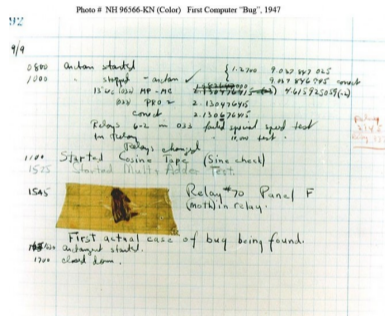 Photo # NH 96566-KN (Color) First Computer "Bug", 1947
92
9/9
0800 antan started
1000 " stopped - antan ✓ { 1.2700 9.037 847 025
9.037 846 995 correct
13"uc (033) MP - MC 2.130476415 (-2) 4.615925059(-2)
033 PRO 2 2.130476415
correct 2.130676415
Relays 6-2 in 033 failed special speed test
in relay " 10.00 test.
Relays changed
1100 Started Cosine Tape (Sine check)
1525 Started Multi Adder Test.
1545 Relay #70 Panel F
(moth) in relay.
First actual case of bug being found.
antangent started.
1700 closed down.